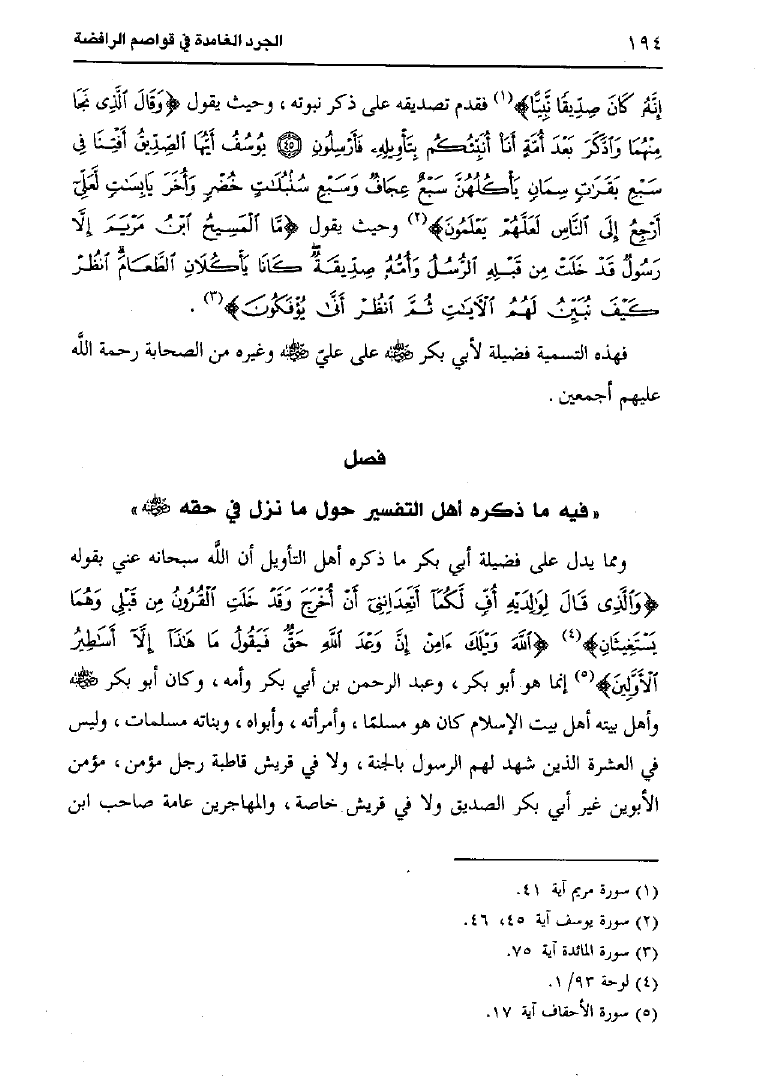 ١٩٤
الجرد الغامدة في قواصم الرافضة
إِنَّهُ كَانَ صِدِّيقًا نَّبِيًّا﴾(١) فقدم تصديقه على ذكر نبوته ، وحيث يقول ﴿وَقَالَ ٱلَّذِى نَجَا
مِنْهُمَا وَٱدَّكَرَ بَعْدَ أُمَّةٍ أَنَا۠ أُنَبِّئُكُم بِتَأْوِيلِهِۦ فَأَرْسِلُونِ ٤٥ يُوسُفُ أَيُّهَا ٱلصِّدِّيقُ أَفْتِنَا فِى
سَبْعِ بَقَرَٰتٍ سِمَانٍ يَأْكُلُهُنَّ سَبْعٌ عِجَافٌ وَسَبْعِ سُنۢبُلَٰتٍ خُضْرٍ وَأُخَرَ يَابِسَٰتٍ لَّعَلِّىٓ
أَرْجِعُ إِلَى ٱلنَّاسِ لَعَلَّهُمْ يَعْلَمُونَ﴾(٢) وحيث يقول ﴿مَّا ٱلْمَسِيحُ ٱبْنُ مَرْيَمَ إِلَّا
رَسُولٌ قَدْ خَلَتْ مِن قَبْلِهِ ٱلرُّسُلُ وَأُمُّهُۥ صِدِّيقَةٌ ۖ كَانَا يَأْكُلَانِ ٱلطَّعَامَ ۗ ٱنظُرْ
كَيْفَ نُبَيِّنُ لَهُمُ ٱلْآيَٰتِ ثُمَّ ٱنظُرْ أَنَّىٰ يُؤْفَكُونَ﴾(٣) .
فهذه التسمية فضيلة لأبي بكر رضي الله عنه على عليّ رضي الله عنه وغيره من الصحابة رحمة اللَّه
عليهم أجمعين .
فصل
« فيه ما ذكره أهل التفسير حول ما نزل في حقه رضي الله عنه »
ومما يدل على فضيلة أبي بكر ما ذكره أهل التأويل أن اللَّه سبحانه عني بقوله
﴿وَٱلَّذِى قَالَ لِوَٰلِدَيْهِ أُفٍّ لَّكُمَآ أَتَعِدَانِنِىٓ أَنْ أُخْرَجَ وَقَدْ خَلَتِ ٱلْقُرُونُ مِن قَبْلِى وَهُمَا
يَسْتَغِيثَانِ﴾(٤) ﴿ٱللَّهَ وَيْلَكَ ءَامِنْ إِنَّ وَعْدَ ٱللَّهِ حَقٌّ فَيَقُولُ مَا هَٰذَآ إِلَّآ أَسَٰطِيرُ
ٱلْأَوَّلِينَ﴾(٥) إنما هو أبو بكر ، وعبد الرحمن بن أبي بكر وأمه ، وكان أبو بكر رضي الله عنه
وأهل بيته أهل بيت الإسلام كان هو مسلمًا ، وأمرأته ، وأبواه ، وبناته مسلمات ، وليس
في العشرة الذين شهد لهم الرسول بالجنة ، ولا في قريش قاطبة رجل مؤمن ، مؤمن
الأبوين غير أبي بكر الصديق ولا في قريش خاصة ، والمهاجرين عامة صاحب ابن
(١) سورة مريم آية ٤١.
(٢) سورة يوسف آية ٤٥، ٤٦.
(٣) سورة المائدة آية ٧٥.
(٤) لوحة ٩٣/ ١.
(٥) سورة الأحقاف آية ١٧.